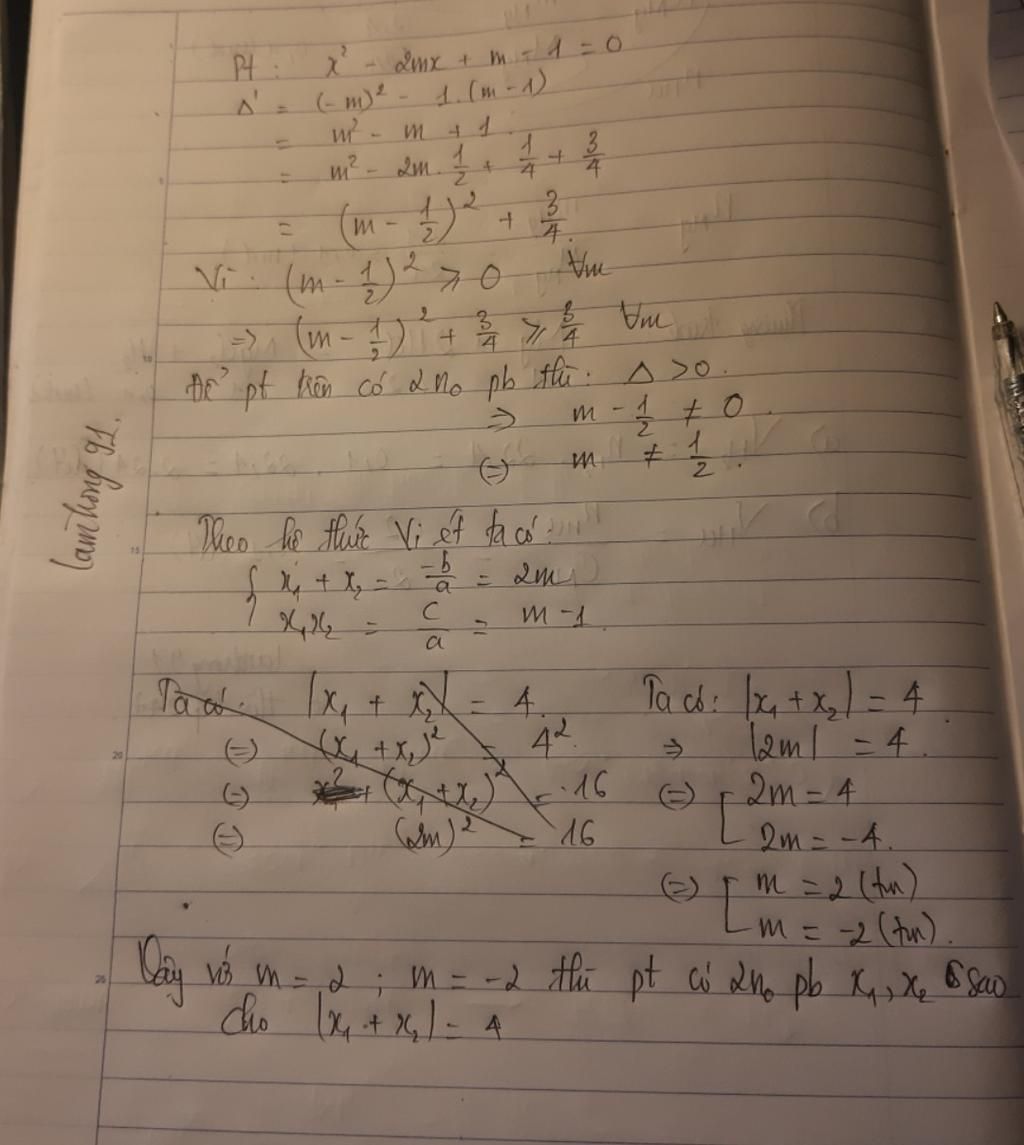 Pt : x² - 2mx + m - 1 = 0
Δ' = (-m)² - 1.(m-1)
= m² - m + 1
= m² - 2m.1/2 + 1/4 + 3/4
= (m - 1/2)² + 3/4.
Vì : (m - 1/2)² ⩾ 0 ∀m
=> (m - 1/2)² + 3/4 ⩾ 3/4 ∀m
Để pt trên có 2 n₀ pb thì: Δ > 0.
=> m - 1/2 ≠ 0.
(=) m ≠ 1/2.
Theo hệ thức Vi ét ta có:
{ x₁ + x₂ = -b/a = 2m
x₁x₂ = c/a = m - 1.
Ta có: |x₁ + x₂| = 4.
(=) (x₁ + x₂)² = 4².
(=) (x₁ + x₂)² = 16
(=) (2m)² = 16
Ta có: |x₁ + x₂| = 4.
=> |2m| = 4.
(=) [ 2m = 4
2m = -4.
(=) [ m = 2 (tm)
m = -2 (tm).
Vậy với m = 2 ; m = -2 thì pt có 2n₀ pb x₁, x₂ sao
cho |x₁ + x₂| = 4